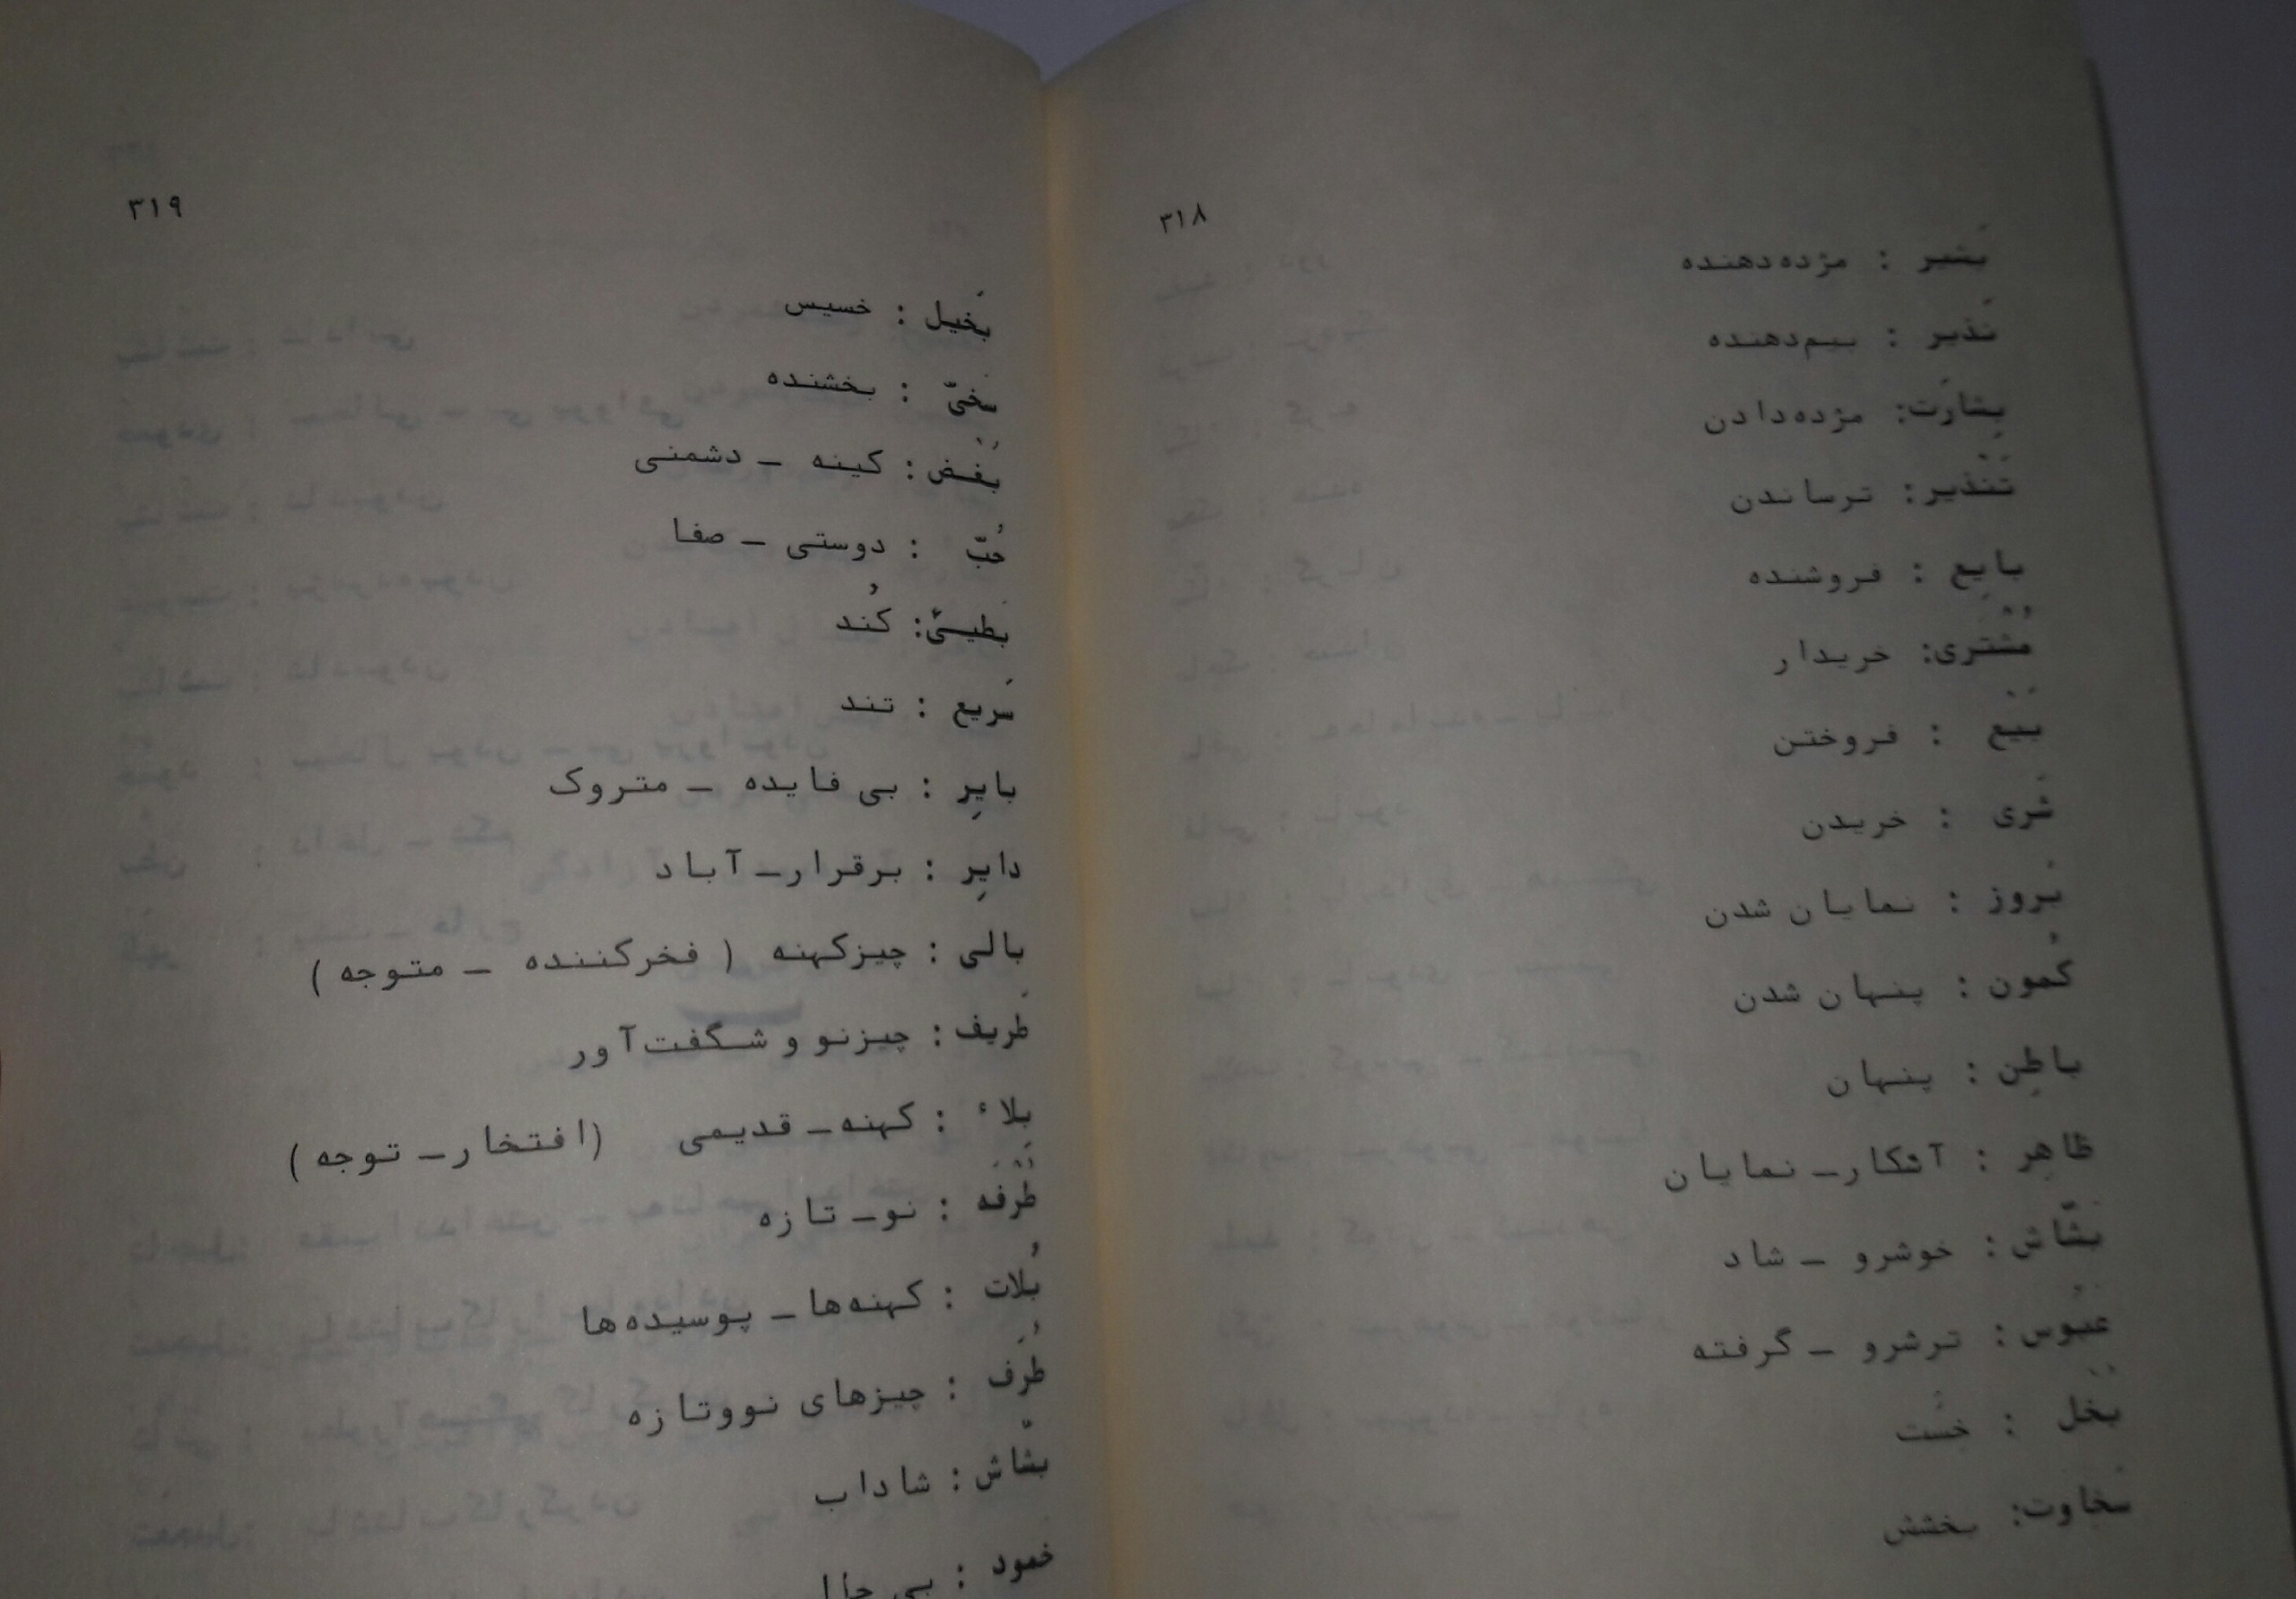 ۳۱۸
بَشیر : مژده‌دهنده
نَذیر : بیم‌دهنده
بِشارَت: مژده‌دادن
تَنْذیر: ترساندن
بایِع : فروشنده
مُشْتَری: خریدار
بَیْع : فروختن
شَری : خریدن
بُروز : نمایان شدن
کُمون : پنهان شدن
باطِن : پنهان
ظاهِر : آشکار ـ نمایان
بَشّاش : خوشرو ـ شاد
عَبوس : ترشرو ـ گرفته
بُخْل : خسّت
سَخاوت: بخشش
۳۱۹
بَخیل : خسیس
سَخیّ : بخشنده
بُغْض : کینه ـ دشمنی
حُبّ : دوستی ـ صفا
بَطیئ: کُند
سَریع : تند
بایِر : بی فایده ـ متروک
دایِر : برقرار ـ آباد
بالی : چیزکهنه ( فخرکننده ـ متوجه )
طَریف : چیزنو و شگفت‌آور
بَلاء : کهنه ـ قدیمی (افتخار ـ توجه )
طُرْفَه : نو ـ تازه
بُلات : کهنه‌ها ـ پوسیده‌ها
طُرَف : چیزهای نووتازه
بَشّاش : شاداب
خَمود : بی